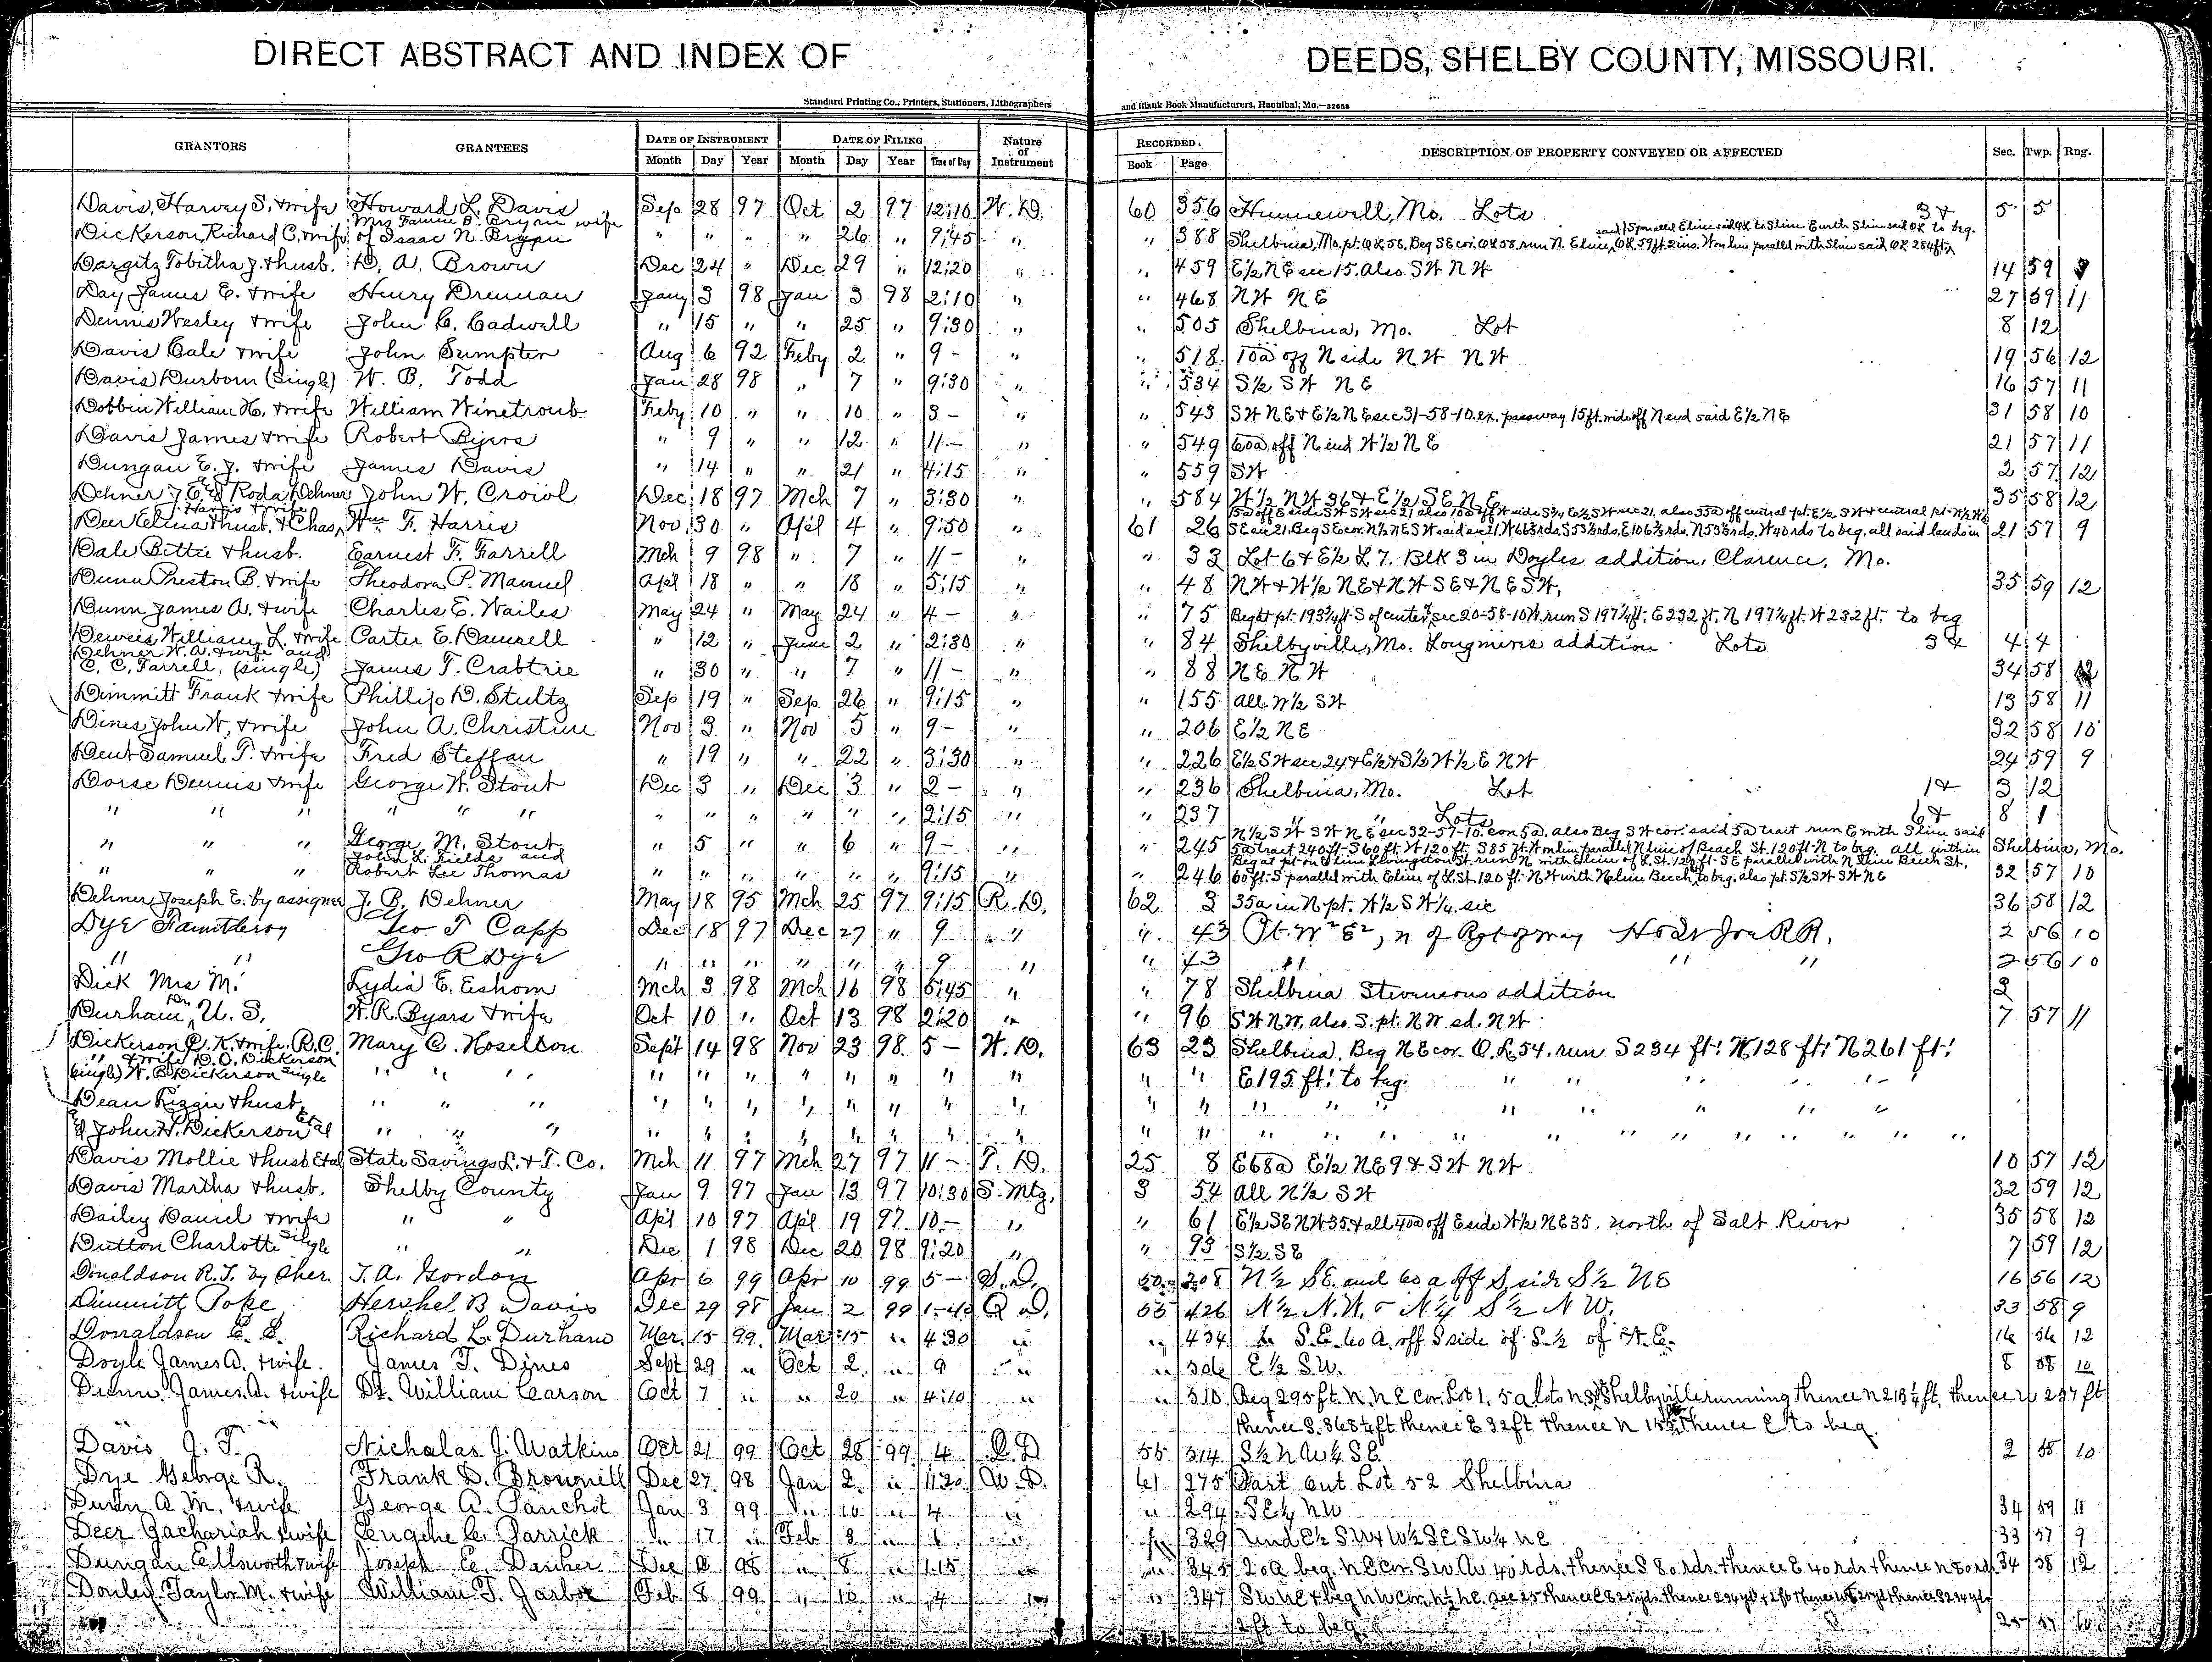 DIRECT ABSTRACT AND INDEX OF DEEDS, SHELBY COUNTY, MISSOURI.
Standard Printing Co., Printers, Stationers, Lithographers and Blank Book Manufacturers, Hannibal, Mo.
GRANTORS GRANTEES DATE OF INSTRUMENT DATE OF FILING Nature of Instrument RECORDED DESCRIPTION OF PROPERTY CONVEYED OR AFFECTED Sec. Twp. Rng.
Month Day Year Month Day Year Time of Day Book Page
Davis, Harvey S, & wife Howard L. Davis Sep 28 97 Oct 2 97 12:10 W. D. 60 356 Hunnewell, Mo. Lots 3 & 5 5
Dickerson, Richard C. & wife Mrs Fannie B. Bryan wife of Isaac N. Bryan " " " " 26 " 9:45 " " 388 Shelbina, Mo. pt. OL 58, Beg SE cor. OL 58, run N. E line OL 59 ft 2 ins. W on line parallel with S line said OL 284 ft
Dargitz Tobitha J. & husb. D. A. Brown Dec 24 " Dec 29 " 12:20 " " 459 E½ NE sec 15. Also SW NW 14 59 9
Day James E. & wife Henry Drennan Jany 3 98 Jan 3 98 2:10 " " 468 NW NE 27 59 11
Dennis Wesley & wife John C. Cadwell " 15 " " 25 " 9:30 " " 505 Shelbina, Mo. Lot 8 12
Davis Cale & wife John Sumpter Aug 6 92 Feby 2 " 9 - " " 518 10a off N side NW NW 19 56 12
Davis Durborn (Single) W. B. Todd Jan 28 98 " 7 " 9:30 " " 534 S½ SW NE 16 57 11
Dobbin William H. & wife William Winetroub Feby 10 " " 10 " 3 - " " 543 SW NE & E½ NE sec 31-58-10. ex. passway 15 ft. wide off N end said E½ NE 31 58 10
Davis James & wife Robert Byers " 9 " " 12 " 11 - " " 549 60a off N end W½ NE 21 57 11
Dungan E. J. & wife James Davis " 14 " " 21 " 4:15 " " 559 SW 2 57 12
Dehner J. E. & Roda Dehner John W. Crowl Dec 18 97 Mch 7 " 3:30 " " 584 W½ NW 36 & E½ SE NE 35 58 12
Deer & husb. & Chas, Wm F. Harris Nov. 30 " Apl 4 " 9:50 " 61 26 SE sec 21. Beg SE cor. N½ NE SW said sec 21. W 66⅔ rds. S 53⅓ rds. E 106⅔ rds. N 53⅓ rds. W 40 rds to beg. all said lands in 21 57 9
Dale Bittie & husb. Earnest F. Farrell Mch 9 98 " 7 " 11 - " " 33 Lot 6 & E½ L 7. Blk 3 in Doyles addition, Clarence, Mo.
Dunn Preston B. & wife Theodora P. Manuel Apl 18 " " 18 " 5:15 " " 48 NW & W½ NE & NW SE & NE SW, 35 59 12
Dunn James A. & wife Charles E. Wailes May 24 " May 24 " 4 - " " 75 Beg at pt. 193¾ ft. S of center sec 20-58-10 W. run S 197¼ ft. E 232 ft. N 197¼ ft. W 232 ft. to beg
Deweis William L. & wife Carter E. Damrell " 12 " June 2 " 2:30 " " 84 Shelbyville, Mo. Longmires addition Lots 3 & 4 4
Dehner W. A. & wife and
C. C. Farrell, (single) James T. Crabtrie " 30 " " 7 " 11 - " " 88 NE NW 34 58
Dimmitt Frank & wife Phillip D. Stultz Sep 19 " Sep 26 " 9:15 " " 155 all W½ SW 13 58 11
Dines John W. & wife John A. Christine Nov 3 " Nov 5 " 9 - " " 206 E½ NE 32 58 10
Dent Samuel T. & wife Fred Steffan " 19 " " 22 " 3:30 " " 226 E½ SW sec 24 & E½ & S½ W½ E NW 24 59 9
Dorse Dennis & wife George W. Stout Dec 3 " Dec 3 " 2 - " " 236 Shelbina, Mo. Lot 1 & 3 12
" " " " " " " " " " " " 2:15 " " 237 " " Lots 6 & 8 1
" " " George M. Stout " 5 " " 6 " 9 - " " 245 N½ SW SW NE sec 32-57-10. con 5a. also Beg SW cor. said 5a tract run E with S line said
5a tract 240 ft. S 60 ft. W 120 ft. S 85 ft. W on line parallel N line of Beach St. 120 ft. N to beg. all within Shelbina, Mo.
" " " John L. Fields and Robert Lee Thomas " " " " " " 9:15 " " 246 60 ft. S parallel with E line of L. St. 120 ft. NW with N line Beech to beg. also pt. S½ SW SW NE 32 57 10
Dehner, Joseph E. by assignee J. B. Dehner May 18 95 Mch 25 97 9:15 R. D. 62 3 35a in N pt. W½ SW¼ sec 36 58 12
Dye Fauntleroy Geo T Capp Dec 18 97 Dec 27 " 9 " " 43 Pt. W² E², n of Rgt of way H & St Joe RR. 2 56 10
" " Geo R Dye " " " " " " 9 " " 43 " " " 2 56 10
Dick Mrs M. Lydia E. Eshom Mch 3 98 Mch 16 98 5:45 " " 78 Shelbina Stevensons addition 2
Durham, Dr. U. S. W. R. Byars & wife Oct 10 " Oct 13 98 2:20 " " 96 SW NW. also S. pt. NW sd. NW 7 57 11
Dickerson C. K. & wife. R. C. Mary C. Hoselton Sept 14 98 Nov 23 98 5 - W. D. 63 23 Shelbina. Beg NE cor. O. L 54. run S 234 ft! W 128 ft! N 261 ft!
" & wife D. O. Dickerson
(single) W. B. Dickerson single " " " " " " " " " " " " " E 195 ft! to beg. " " " " "
Dean Lizzie & husb " " " " " " " " " " " " " " " " " " " "
& John H. Dickerson et al " " " " " " " " " " " " " " " " " " " " " " " "
Davis Mollie & husb et al State Savings L. & T. Co. Mch 11 97 Mch 27 97 11 - T. D. 25 8 E 68a E½ NE 9 & SW NW 10 57 12
Davis Martha & husb. Shelby County Jan 9 97 Jan 13 97 10:30 S. Mtg. 3 54 all N½ SW 32 59 12
Dailey Daniel & wife " " Apl 10 97 Apl 19 97 10 - " " 61 E½ SE NW 35. & all 40a off E side W½ NE 35. north of Salt River 35 58 12
Dutton Charlotte single " " Dec 1 98 Dec 20 98 9:20 " " 93 S½ SE 7 59 12
Donaldson R. T. by Sher. T. A. Gordon Apr 6 99 Apr 10 99 5 - S. D. 50 208 N½ SE. and 60 a off S side S½ NE 16 56 12
Dimmitt Pope Hershel B Davis Dec 29 98 Jan 2 99 1-40 Q D. 55 426 N½ N.W. & N¼ S½ N W. 33 58 9
Donaldson E. E. Richard L. Durham Mar. 15 99 Mar 15 " 4 30 " " 434 S. E. 60 A. off S side of S. ½ of N. E. 16 56 12
Doyle James A. & wife. James T. Dines Sept 29 " Oct 2 " 9 " " 306 E½ S.W. 8 58 10
Dunn James A. & wife Dr. William Carson Oct 7 " " 20 " 4:10 " " 310 Beg 295 ft. N. N E cor. Lot 1. 5 a lots N. S. Shelbyville running thence N 218¼ ft, thence W 297 ft
thence S. 365¼ ft thence E 32 ft thence N 155 thence E to beg.
Davis J. T. Nicholas J. Watkins Oct 21 99 Oct 28 99 4 Q. D 55 314 S½ N W¼ SE 2 58 10
Dye George R. Frank D. Brownell Dec 27 98 Jan 2 " 11 20 W. D. 61 275 Part Out Lot 52 Shelbina
Dunn A. M. & wife George A. Panchot Jan 3 99 " 10 " 4 " " 294 SE¼ NW 34 59 11
Deer Zachariah & wife Eugene C. Parrick " 17 " Feb 3 " " " 329 Und E½ SW & W½ SE SW¼ NE 33 57 9
Dungan Ellsworth & wife Joseph E. Dehner Dec 98 " 8 " 1.15 " " 345 20a beg. NE cor. SW. W 40 rds. thence S 80 rds. thence E 40 rds. thence N 80 rds 34 58 12
Donley Taylor M. & wife William T. Jarboe Feb 8 99 " 10 " 4 " " 347 SW NE & beg NW cor. N½ NE sec 25
2 ft to beg. 25 57 10